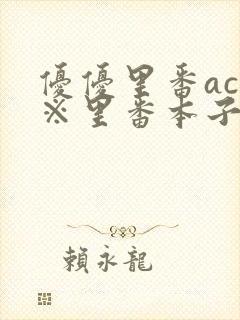 優優里番ac
※里番本子
賴永龍